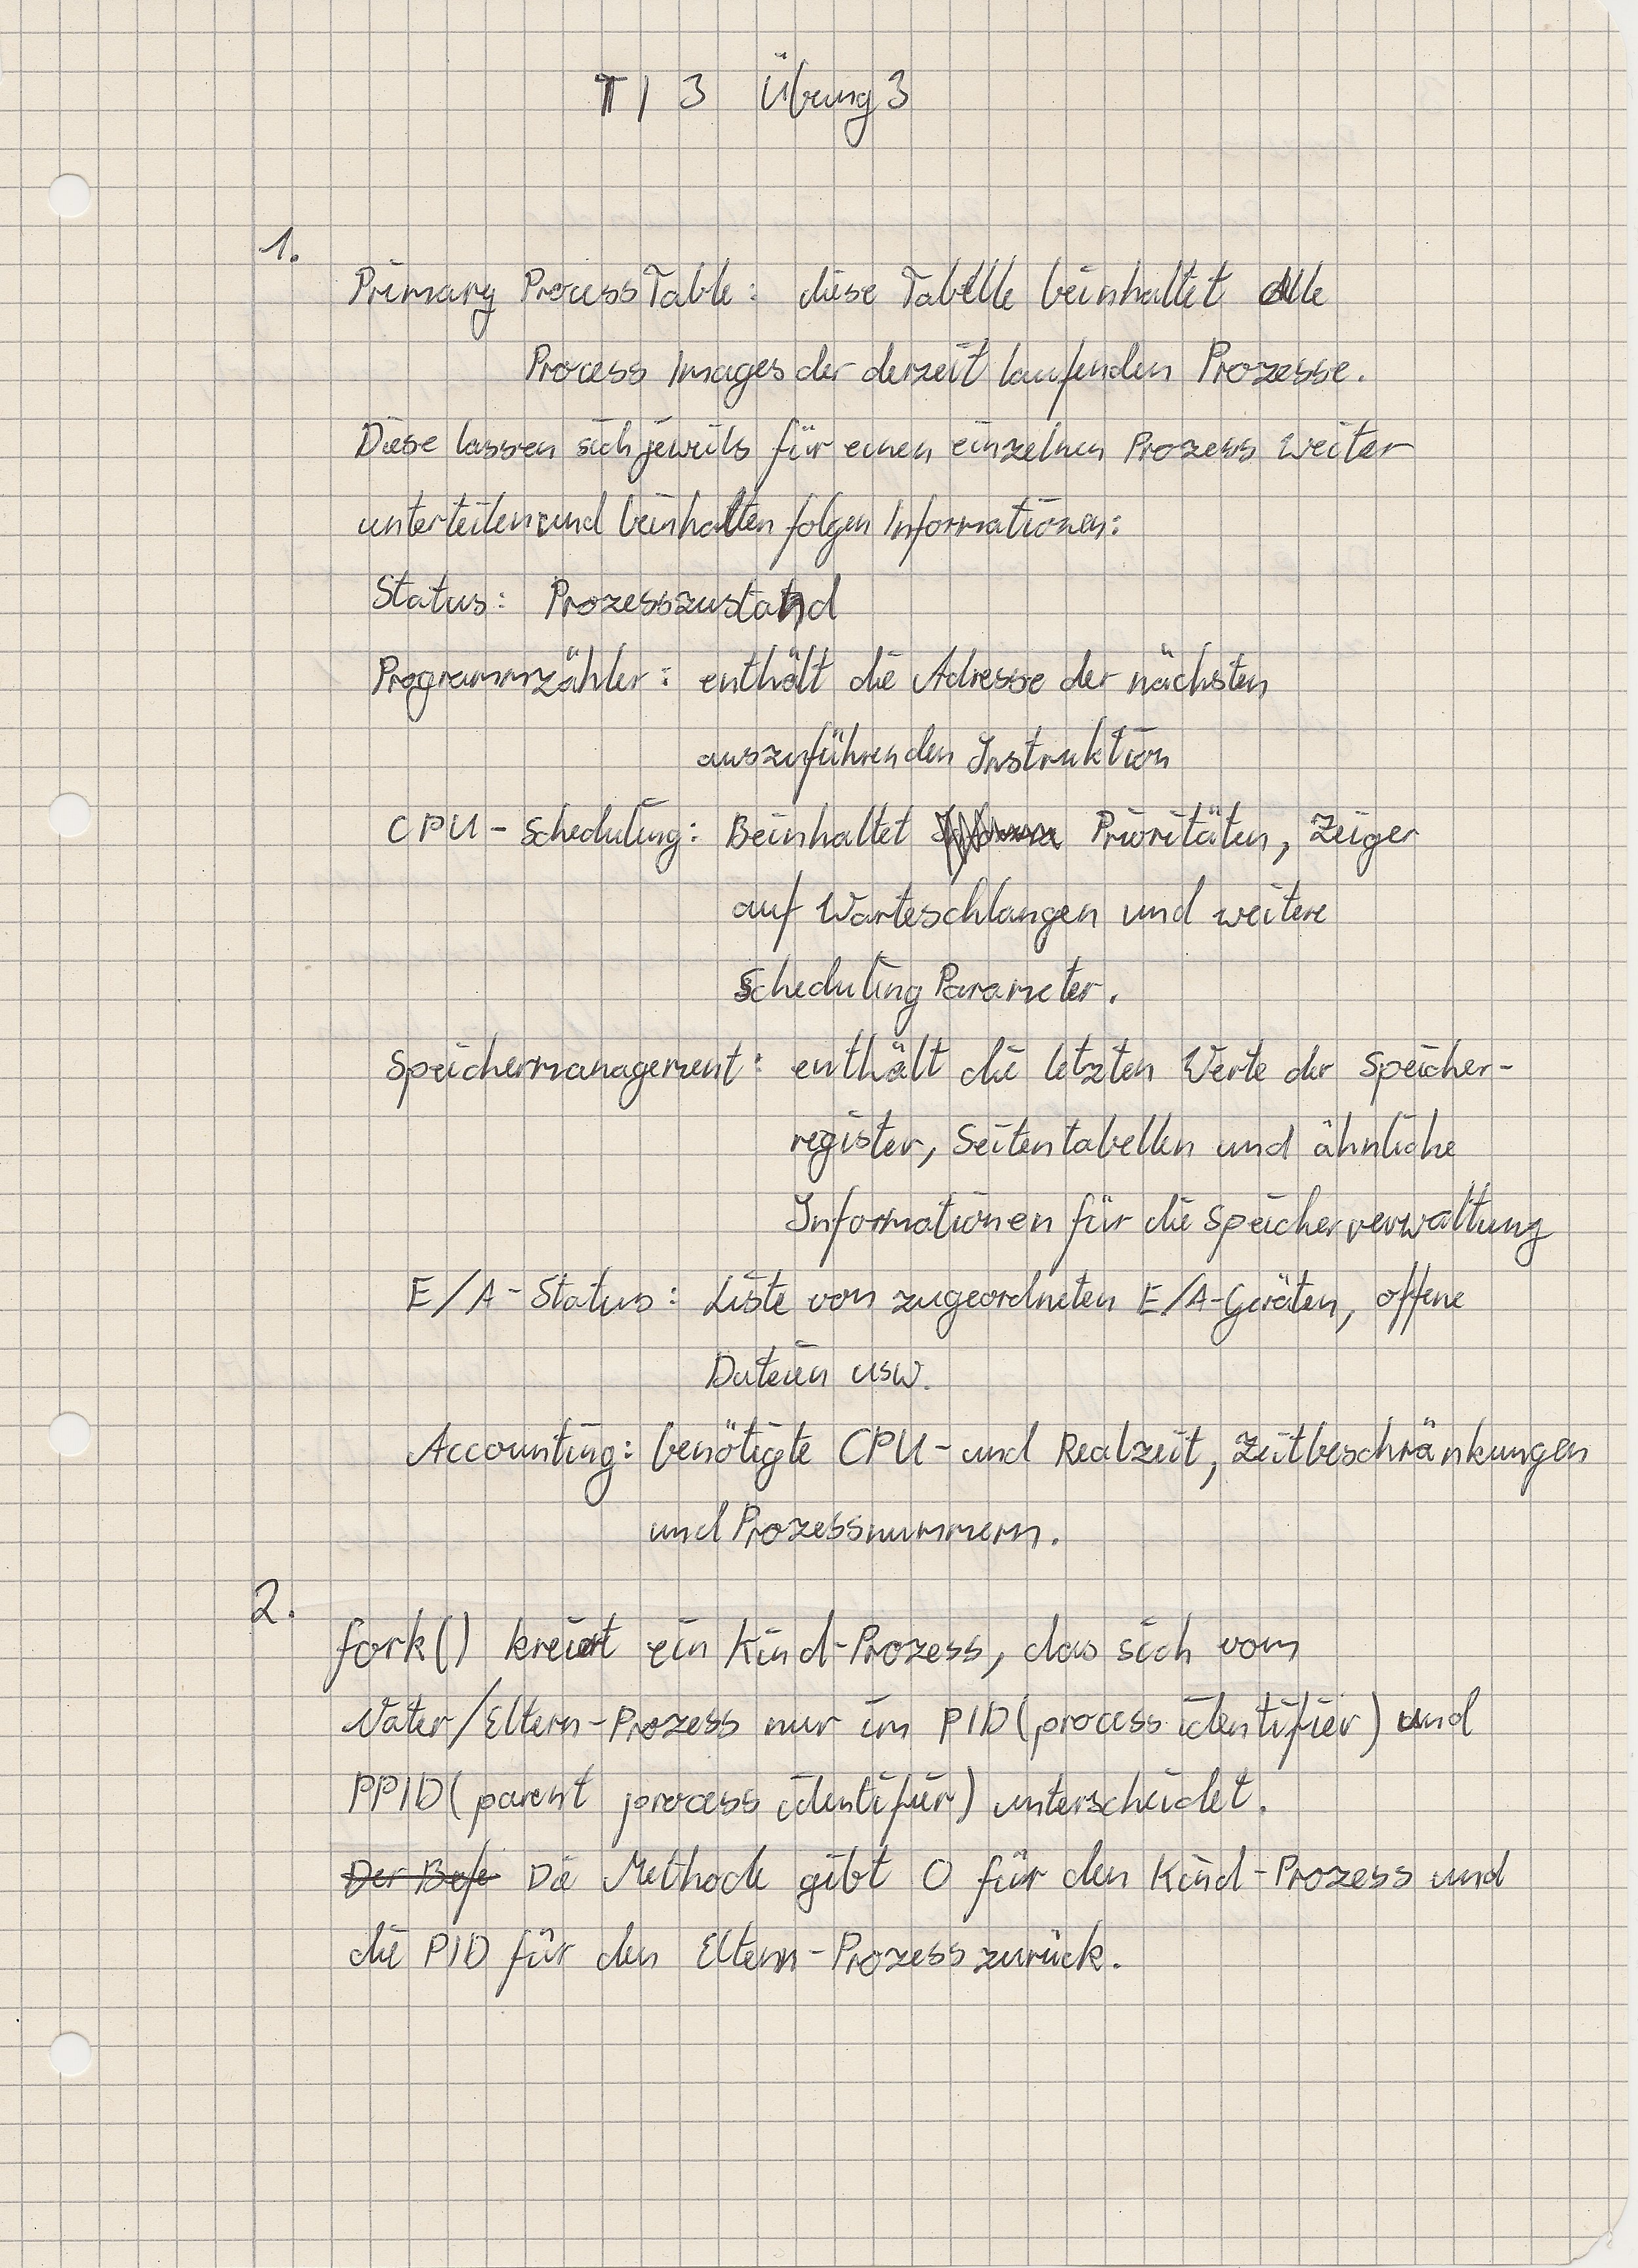 TI 3 Übung 3
1.
Primary Process Table: diese Tabelle beinhaltet alle
Process Images der derzeit laufenden Prozesse.
Diese lassen sich jeweils für einen einzelnen Prozess weiter
unterteilen und beinhalten folgen Informationen:
Status: Prozesszustand
Programmzähler: enthält die Adresse der nächsten
auszuführenden Instruktion
CPU-Scheduling: Beinhaltet Prioritäten, Zeiger
auf Warteschlangen und weitere
Scheduling Parameter.
Speichermanagement: enthält die letzten Werte der Speicher-
register, Seitentabellen und ähnliche
Informationen für die Speicherverwaltung
E/A-Status: Liste von zugeordneten E/A-Geräten, offene
Dateien usw.
Accounting: benötigte CPU- und Realzeit, Zeitbeschränkungen
und Prozessnummern.
2.
fork() kreiert ein Kind-Prozess, das sich vom
Vater/Eltern-Prozess nur im PID (process identifier) und
PPID (parent process identifier) unterscheidet.
Der Befe Die Methode gibt 0 für den Kind-Prozess und
die PID für den Eltern-Prozess zurück.